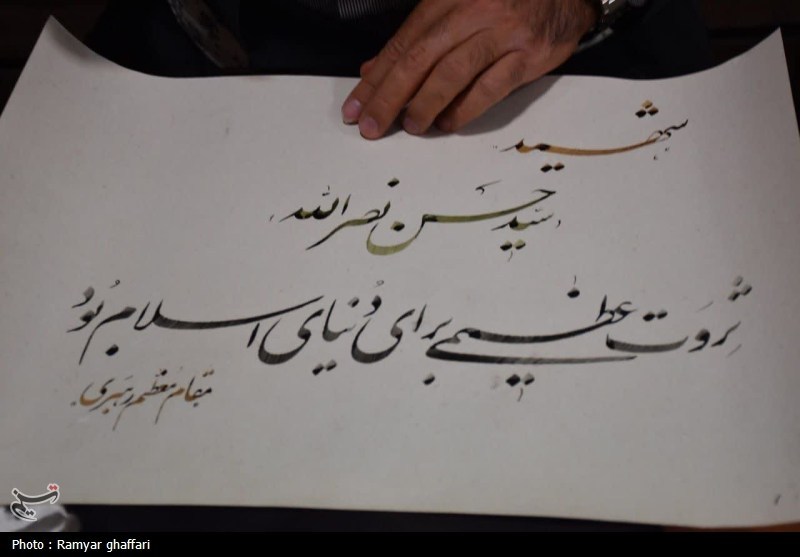 شهید
سید حسن نصرالله
ثروت عظیمی برای دنیای اسلام بود
مقام معظم رهبری
تسنیم
Photo : Ramyar ghaffari